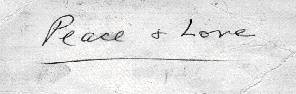 Peace & Love